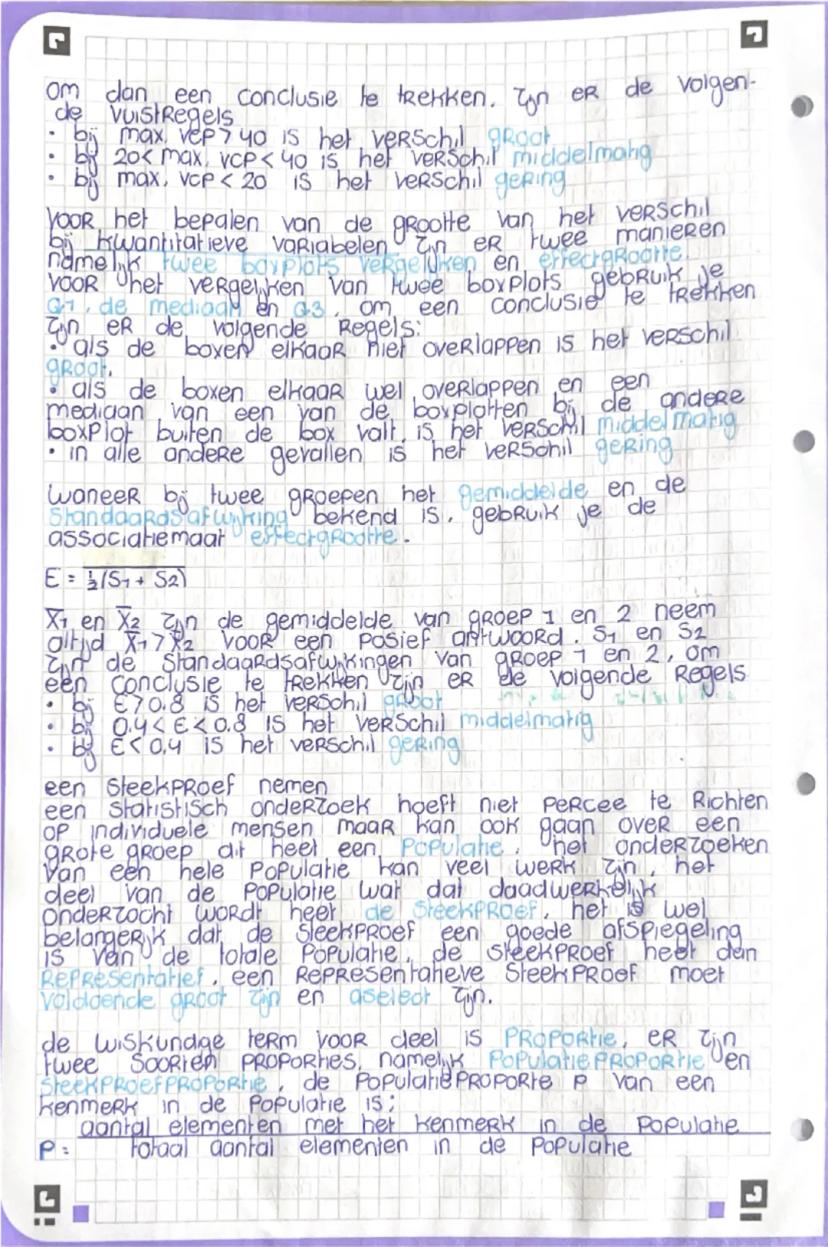 om dan een conclusie te trekken. zijn er de volgen-
de vuistregels
• bij max. vcp > 40 is het verschil groot
• bij 20 < max. vcp < 40 is het verschil middelmatig
• bij max. vcp < 20 is het verschil gering
voor het bepalen van de grootte van het verschil
bij kwantitatieve variabelen zijn er twee manieren
namelijk twee boxplots vergelijken en effectgrootte.
voor het vergelijken van twee boxplots gebruik je
Q1, de mediaan en Q3, om een conclusie te trekken
zijn er de volgende regels:
• als de boxen elkaar niet overlappen is het verschil
groot.
• als de boxen elkaar wel overlappen en een
mediaan van een van de boxplotten bij de andere
boxplot buiten de box valt, is het verschil middelmatig
• in alle andere gevallen is het verschil gering
waneer bij twee groepen het gemiddelde en de
standaardsafwijking bekend is, gebruik je de
associatiemaat effectgrootte.
E = ½(S1 + S2)
X̄1 en X̄2 zijn de gemiddelde van groep 1 en 2 neem
altijd X̄1 > X̄2 voor een posief antwoord. S1 en S2
zijn de standaardsafwijkingen van groep 1 en 2, om
een conclusie te trekken zijn er de volgende regels
• bij E > 0.8 is het verschil groot
• bij 0.4 < E < 0.8 is het verschil middelmatig
• bij E < 0,4 is het verschil gering
een steekproef nemen
een statistisch onderzoek hoeft niet percee te richten
op individuele mensen maar kan ook gaan over een
grote groep dit heet een populatie. het onderzoeken
van een hele populatie kan veel werk zijn, het
deel van de populatie wat dat daadwerkelijk
onderzocht wordt heet de steekproef, het is wel
belangerijk dat de steekproef een goede afspiegeling
is van de totale populatie, de steekproef heet dan
representatief, een representatieve steekproef moet
voldoende groot zijn en aselect zijn.
de wiskundige term voor deel is proportie, er zijn
twee soorten proporties, namelijk populatieproportie en
steekproefproportie, de populatieproporte p van een
kenmerk in de populatie is:
aantal elementen met het kenmerk in de populatie
p = totaal aantal elementen in de populatie